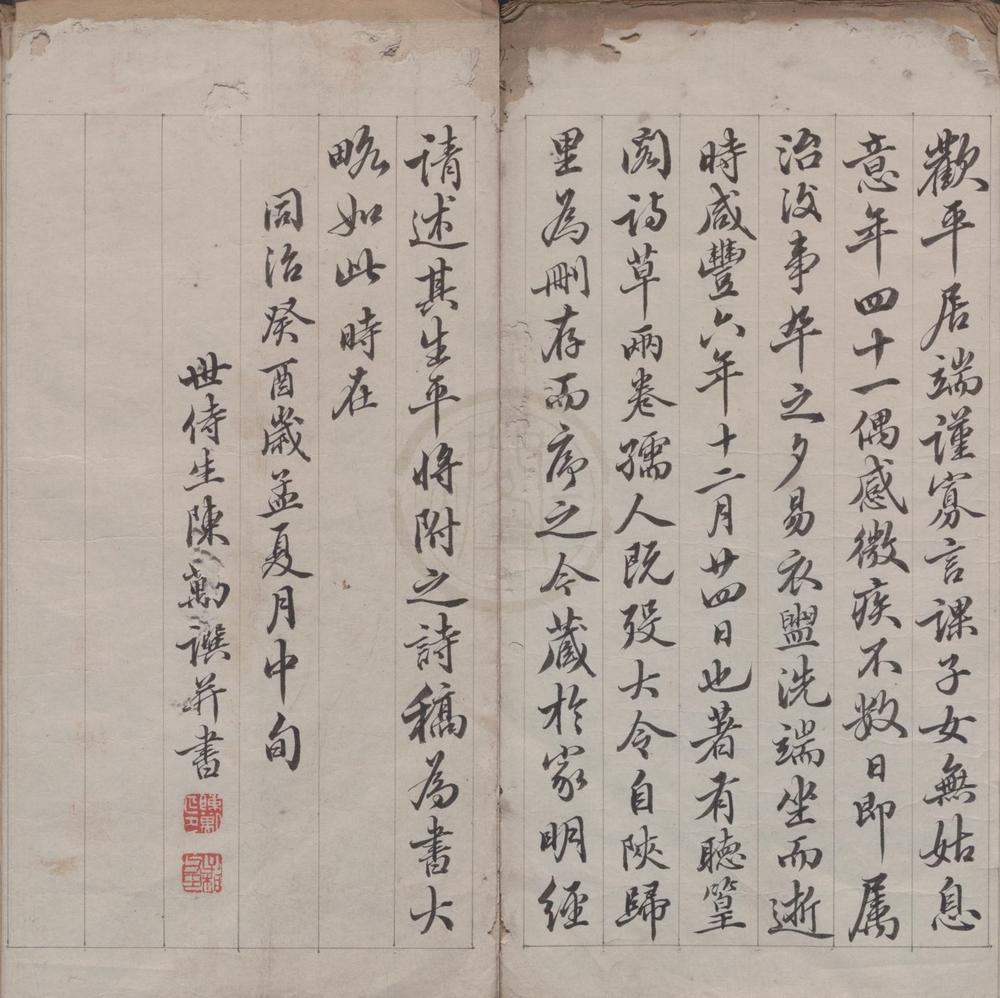 歡平居端謹寡言課子女無姑息
意年四十一偶感微疾不数日即属
治後事畢之夕易衣盥洗端坐而逝
時咸豐六年十二月廿四日也著有聴篁
閣詩草兩卷孺人既殁大令自陝歸
里為刪存而序之令藏扵家明經
請述其生平將附之詩稿為書大
略如此時在
同治癸酉歲孟夏月中旬
世侍生陳勱譔并書